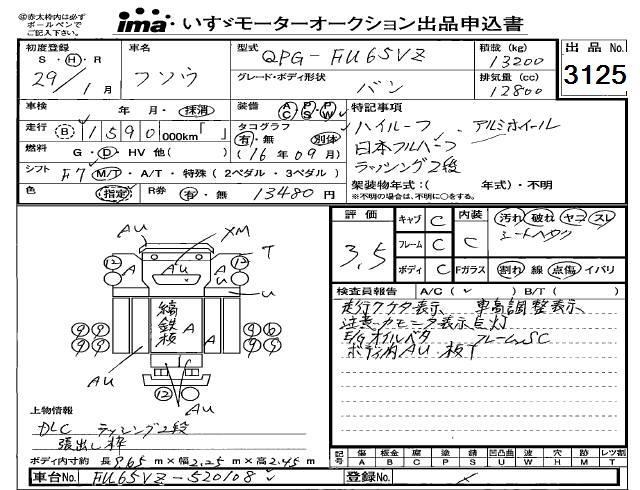 ◎赤太枠内は必ず
ボールペンで
ご記入下さい。
ima いすゞモーターオークション出品申込書
初度登録
S・H・R
29/1月
車名
フソウ
型式
QPG-FU65VZ
積載(kg)
13200
出品No.
3125
グレード・ボディ形状
バン
排気量(cc)
12800
車検
年 月・抹消
装備
AC PS PW
特記事項
ハイルーフ、アルミホイール
日本フルハーフ
ラッシング2段
走行
B 1590 000km「 」
タコグラフ
有・無 別体
(16年09月)
燃料
G・D・HV 他( )
シフト
F7 M/T・A/T・特殊(2ペダル・3ペダル)
架装物年式:( 年式)・不明
※不明の場合は、不明に○をする。
色
指定
R券
有・無 13480円
評価
3.5
キャブ C
フレーム C
ボディ C
内装
C
Fガラス
汚れ 破れ ヤニ スレ
シートヘタリ
割れ 線 点傷 イバリ
検査員報告 A/C( ✓ ) B/T( )
走行クケタ表示 車高調整表示
注意カモニタ表示点灯
E/Gオイルベタ フレームSC
ボディ内AU・板T
AU
XM
T
12
12
A
AU
A
A
U
縞鉄板
A
A
9 9
9 9
9 6
9 9
AU
AU
12
上物情報
DLC ラッシング2段
張出し枠
ボディ内寸約 長9.65m×幅2.25m×高2.45m
記号
傷 板金 腐 塗 錆 凹凸曲 波 穴 跡 レツ割
A B C P S U W H M T
車台No. FU65VZ-520108
登録No. ×